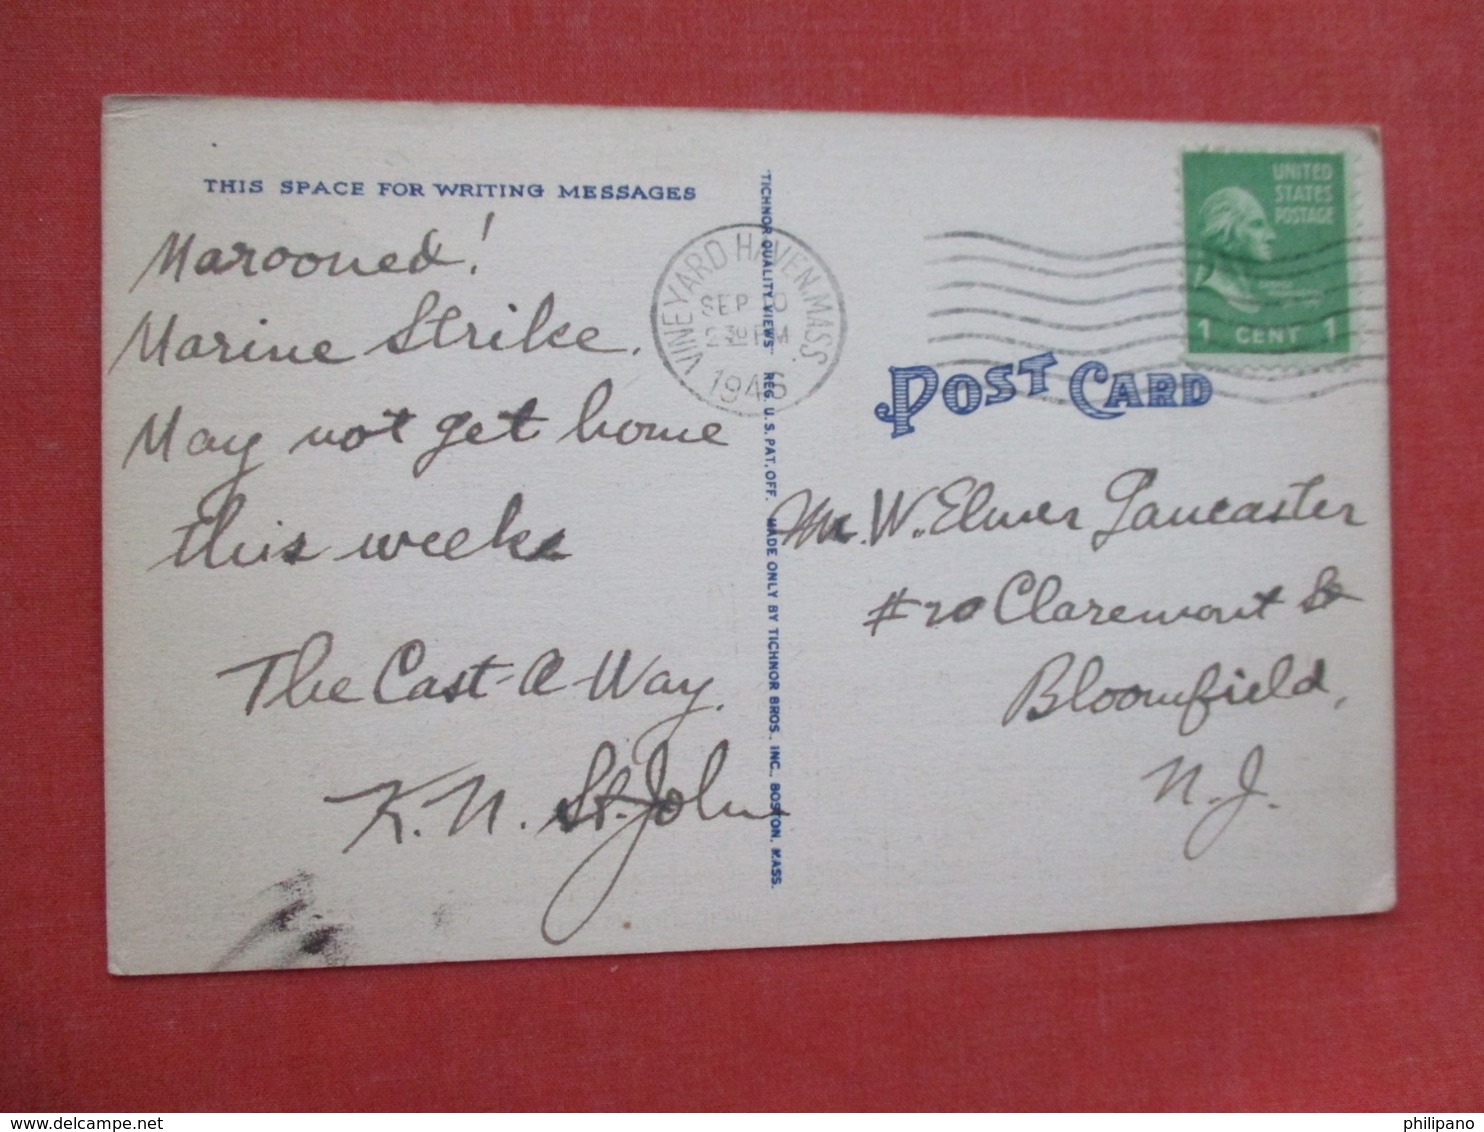 THIS SPACE FOR WRITING MESSAGES
Marooned!
Marine Strike.
May not get home
this week
The Cast-A-Way.
K. N. St. John
"TICHNOR QUALITY VIEWS" REG. U. S. PAT. OFF. MADE ONLY BY TICHNOR BROS., INC., BOSTON, MASS.
VINEYARD HAVEN, MASS.
SEP 0
230 PM
1946
UNITED
STATES
POSTAGE
1 CENT 1
POST CARD
Mr. W. Elmer Lancaster
#20 Claremont
Bloomfield,
N. J.
http://www.delcampe.net
philipano